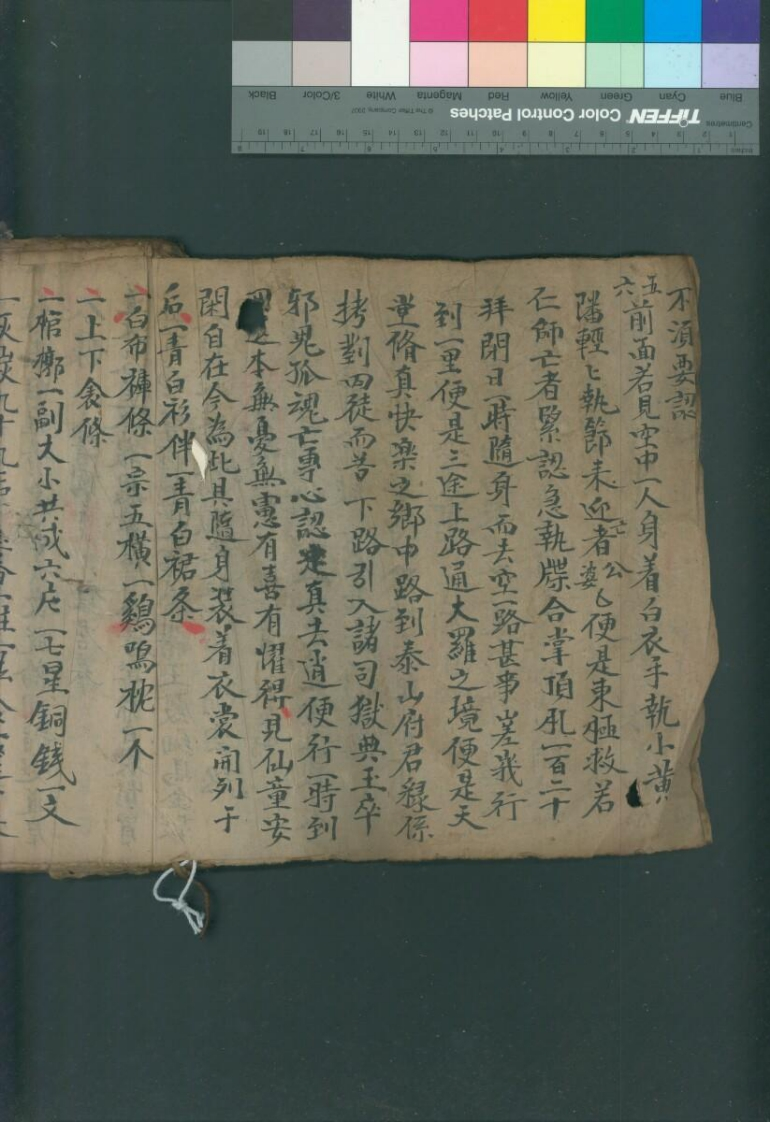 不須要認
五六前面若見空中一人身着白衣手執小黃
旙輕〻執節来迎者亡公婆〻便是東極救苦
仁師亡者緊認急執牒合掌頂礼一百二十
拜閉日一時隨身而去空一路甚事嵳峩行
到一里便是三途上路通大羅之境便是天
堂脩真快楽之鄉中路到泰山府君祿係
拷對囚徒而苦下路引入諸司獄典王卒
邪鬼孤魂亡專心認定真去逍便行一時到
本無憂無慮有喜有懼得見仙童安
閑自在今為此具隨身裝着衣裳開列于
后一青白衫伴一青白裙条
一白布褲條一宗五橫一鷄鳴枕一个
一上下衾條
一棺槨一副大小共成六片一七星銅錢一文
Blue
Cyan
Green
Yellow
Red
Magenta
White
3/Color
Black
TIFFEN Color Control Patches
© The Tiffen Company, 2007
Centimetres
Inches